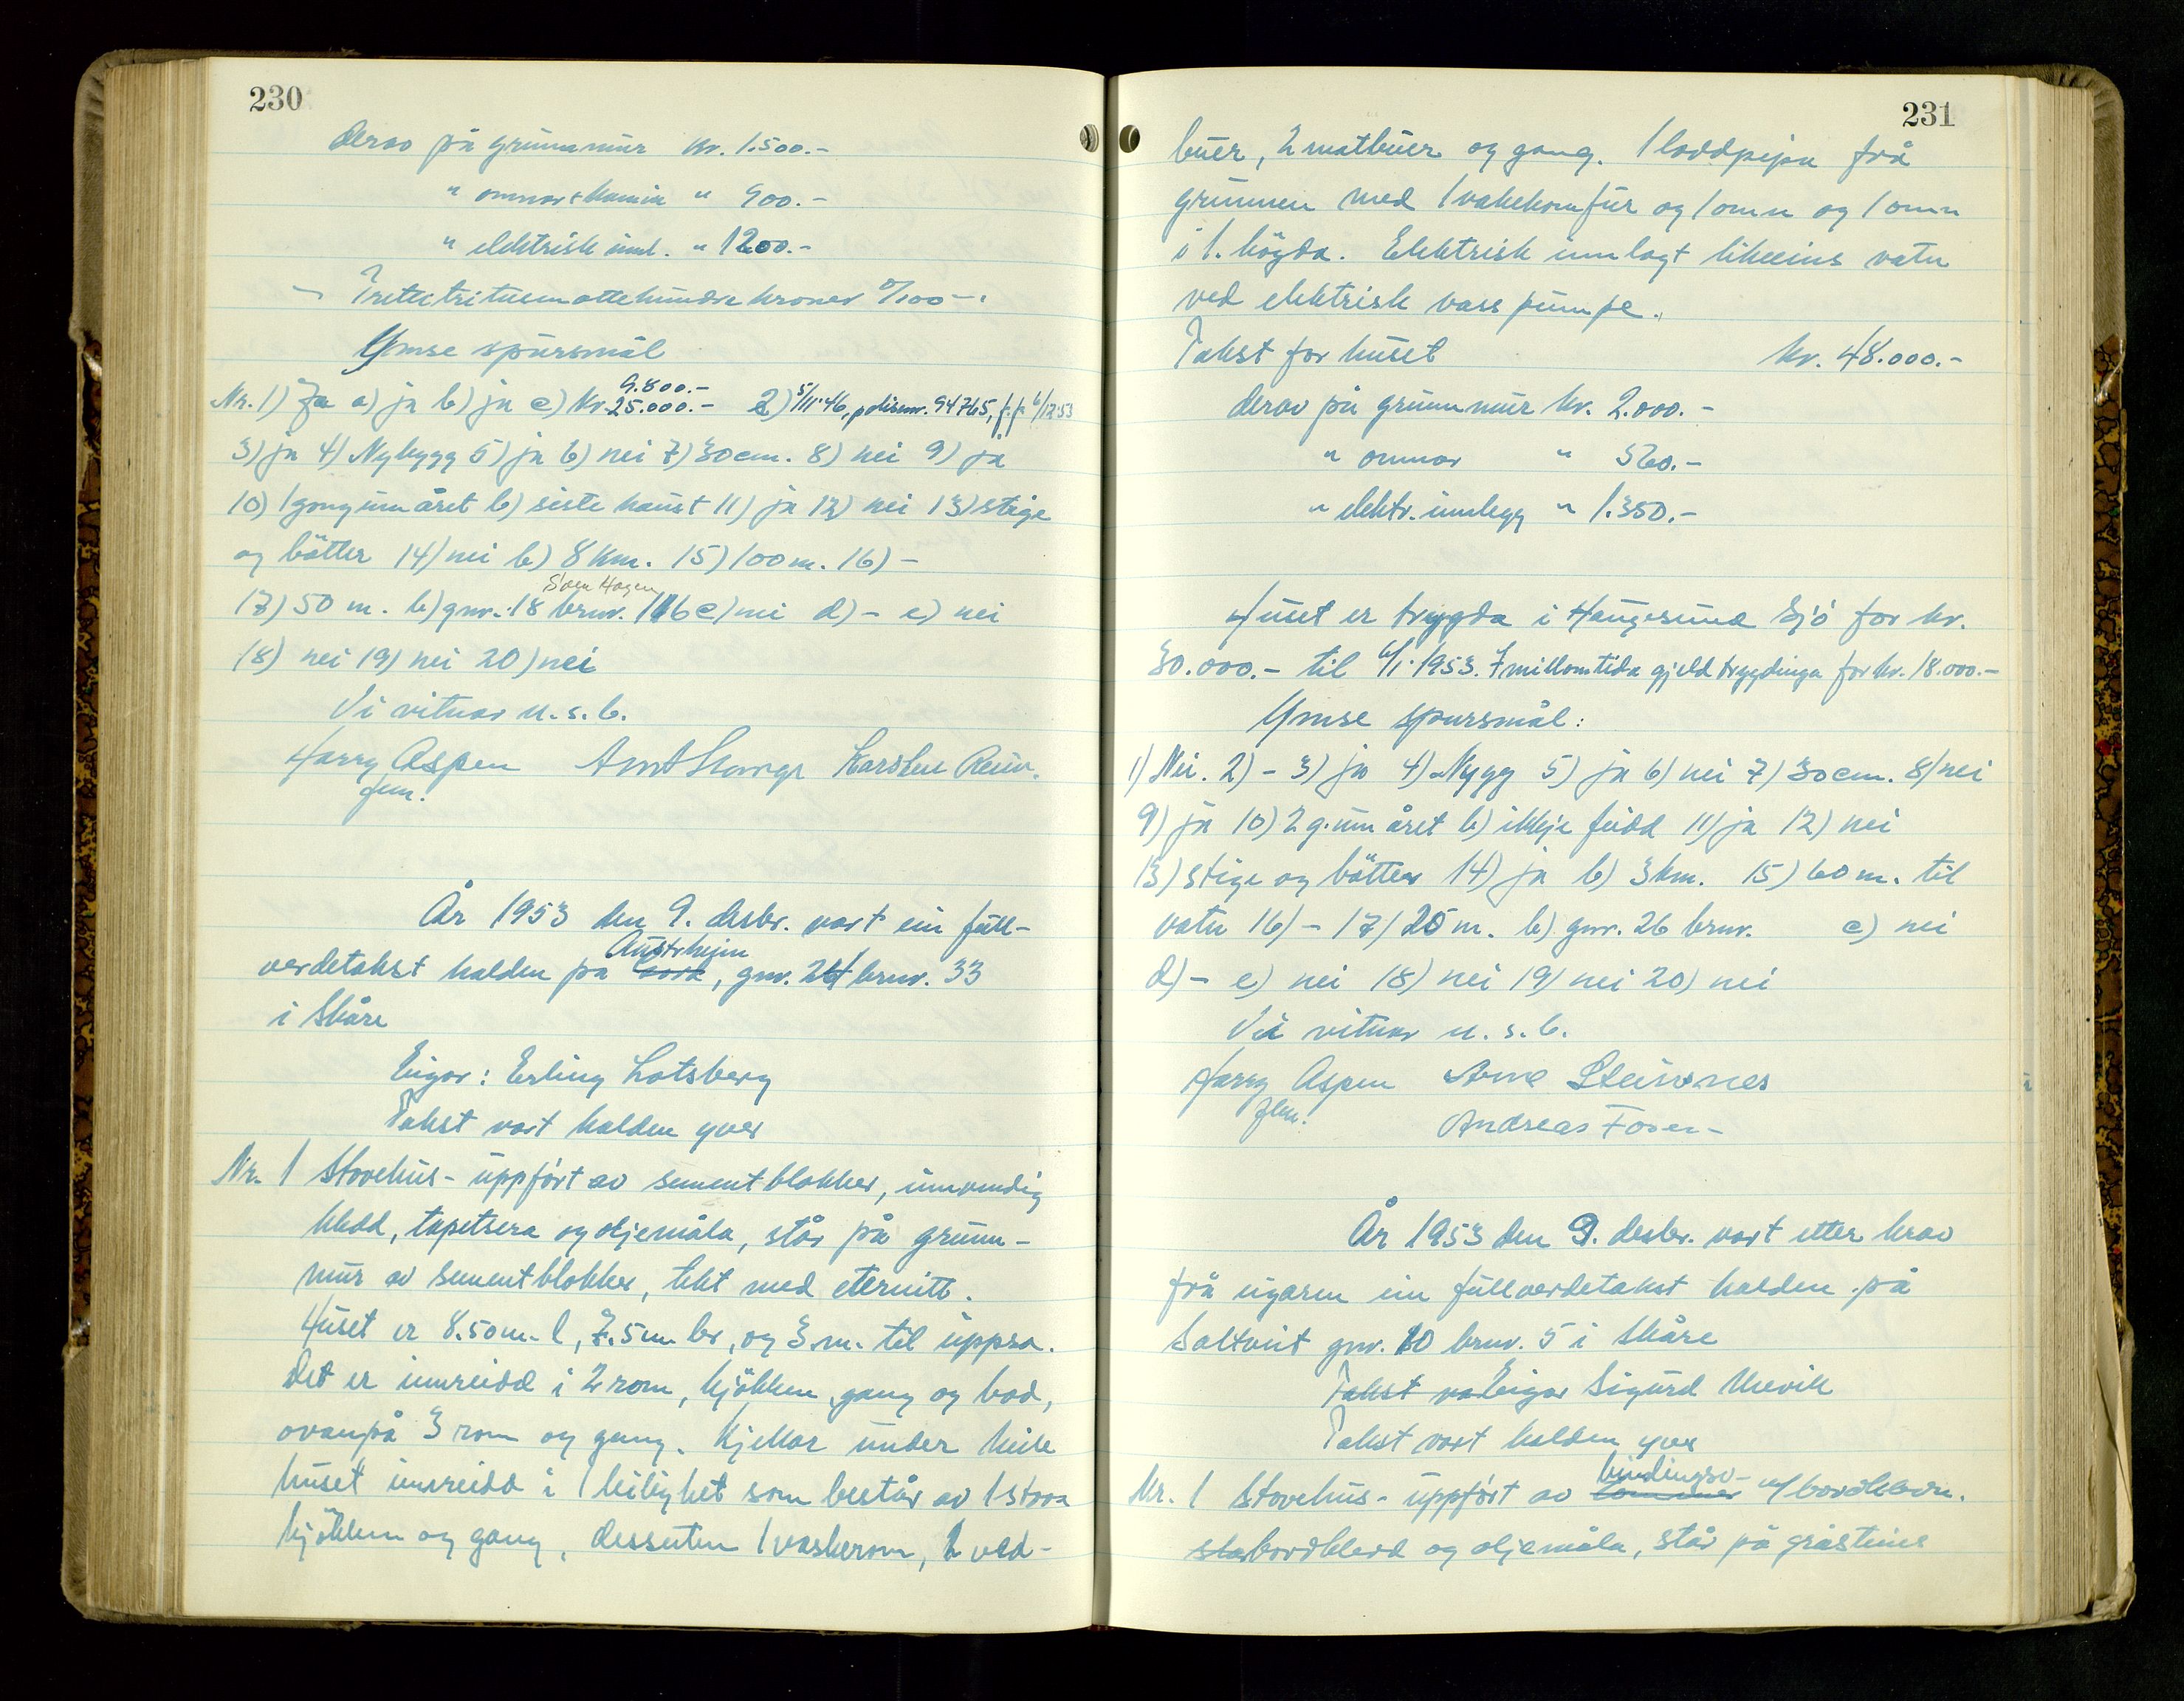 230
derav på grunnmur kr. 1.500.-
" omnar + kamin " 900.-
" elektrisk innl. " 1200.-
- Trettitritusenattehundre kroner 0/100-.
Ymse spursmål
Nr. 1) Ja a) ja b) ja c) kr. 25.000.- 9.800.- 2) 5/11.46, polisenr. 94765, f.f. 6/12.53
3) ja 4) Nybygg 5) ja 6) nei 7) 30 cm. 8) nei 9) ja
10) 1 gong um året b) siste haust 11) ja 12) nei 13) stige
og bötter 14) nei b) 8 km. 15) 100 m. 16) -
Sven Hagen
17) 50 m. b) gnr. 18 brnr. 116 c) nei d) - e) nei
18) nei 19) nei 20) nei
Vi vitnar u. s. b.
Harry Aspen Karsten
fm.
År 1953 den 9. desbr. vart ein full-
Austrheim
verdetakst halden på , gnr. 26 brnr. 33
i Skåre
Eigar: Erling Lotsberg
Takst vart halden yver
Nr. 1 Stovehus - uppført av sementblokker, innvendig
kledd, tapetsera og oljemåla, står på grunn-
mur av sementblokker, tekt med eternitt.
Huset er 8.50 m. l, 7.5 m br, og 3 m. til uppsa.
Det er innreidd i 2 rom, kjökken, gang og bad,
ovanpå 3 rom og gang. Kjellar under heile
huset innreidd i 1 leilighet som består av 1 stova
kjökken og gang, dessuten 1 vaskerom, 2 ved-
231
buer, 2 matbuer og gang. 1 loddpipa frå
grunnen med 1 vakekomfur og 1 omn og 1 omn
i 1. högda. Elektrisk innlagt likeeins vatn
ved elektrisk vasspumpe.
Takst for huset kr. 48.000.-
derav på grunnmur kr. 2.000.-
" omnar " 560.-
" elektr. innlegg " 1.350.-
Huset er trygda i Haugesund Sjö for kr.
30.000.- til 6/1. 1953. I millomtida gjeld trygdinga for kr. 18.000.-
Ymse spursmål:
1) Nei. 2) - 3) ja 4) Nygg 5) ja 6) nei 7) 30 cm. 8) nei
9) ja 10) 2 g. um året b) ikkje feidd 11) ja 12) nei
13) stige og bötter 14) ja b) 3 km. 15) 60 m. til
vatn 16) - 17) 25 m. b) gnr. 26 brnr. c) nei
d) - e) nei 18) nei 19) nei 20) nei
Vi vitnar u. s. b.
Harry Aspen Arne Steinsnes
fm. Andreas Fosen
År 1953 den 9. desbr. vart etter krav
frå eigaren ein fullverdetakst halden på
Saltveit gnr. 10 brnr. 5 i Skåre
Takst va Eigar Sigurd
Takst vart halden yver
bindingsv-
Nr. 1 Stovehus - uppført av m/ bordkledn.
sta bordkledd og oljemåla, står på gråsteins